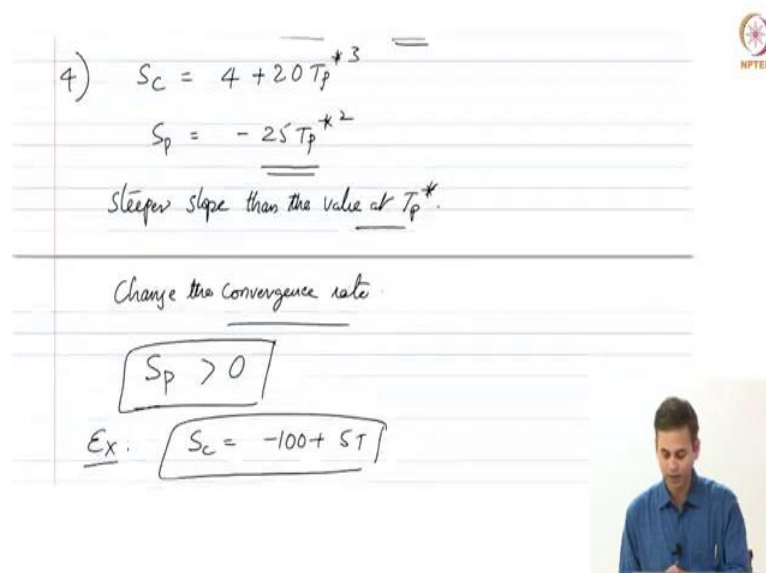 NPTEL
4) Sc = 4 + 20 Tp*3
Sp = - 25 Tp*2
Steeper slope than the value at Tp*.
Change the convergence rate.
Sp > 0
Ex: Sc = -100 + 5T